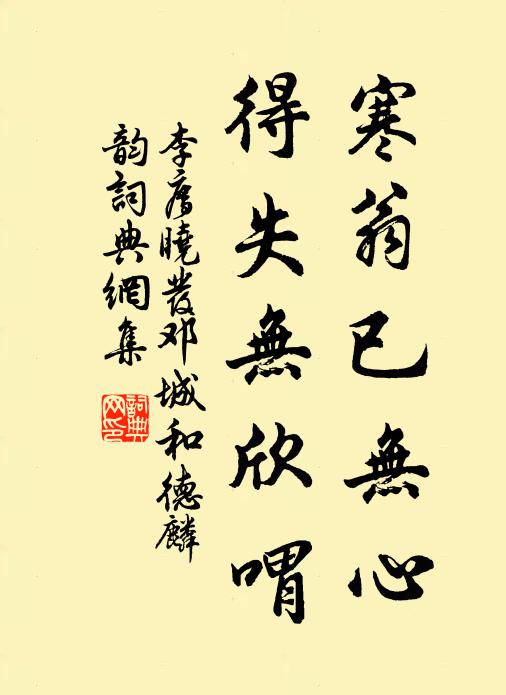 寒翁已無心
得失無欣喟
李廌曉發邓城和德麟
韵詞典網集
詞典网印